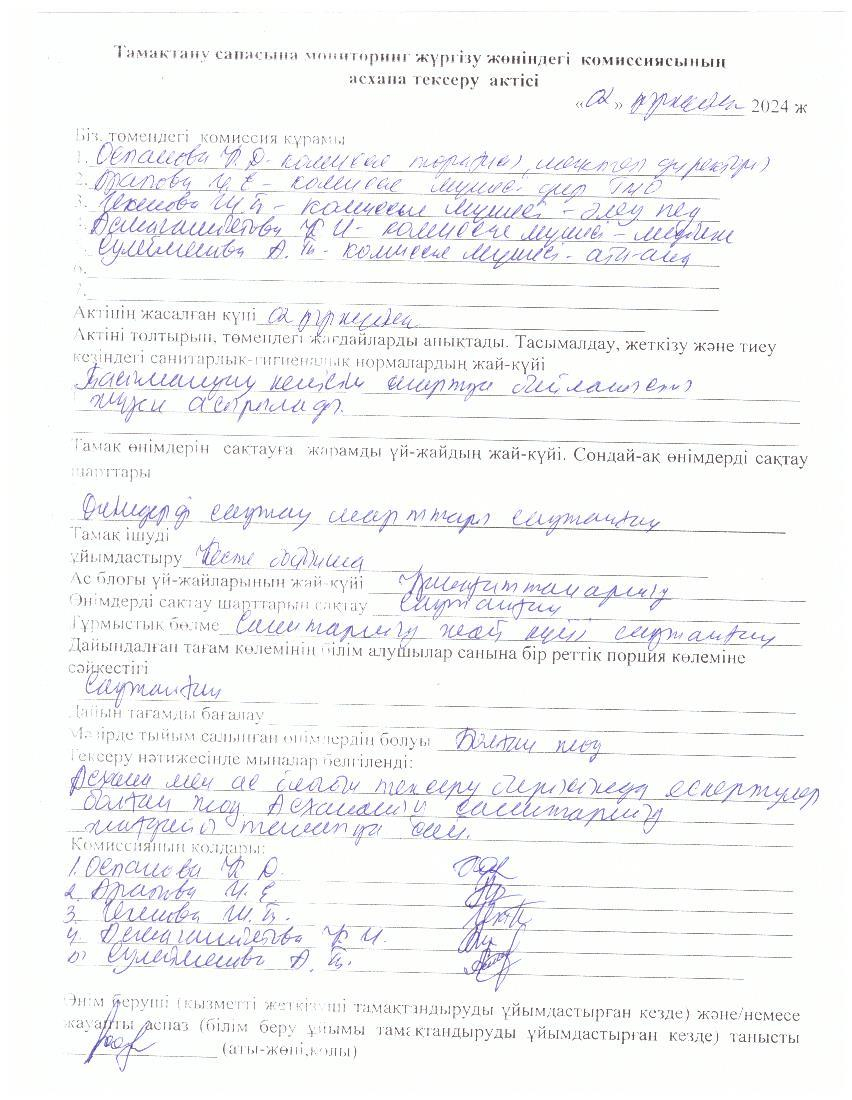 Тамақтану сапасына мониторинг жүргізу жөніндегі комиссиясының
асхана тексеру актісі
«02» қыркүйек 2024 ж
Біз, төмендегі комиссия құрамы
1. Оспанова Қ. Д - комиссия төрайымы, мектеп директоры
2. - комиссия мүшесі
3. Ш. Т - комиссия мүшесі - әлеу пед
4. Қ И - комиссия мүшесі - медбике
Сулейменова А. Т - комиссия мүшесі - ата-ана
6.
7.
Актінің жасалған күні 02 қыркүйек
Актіні толтырып, төмендегі жағдайларды анықтады. Тасымалдау, жеткізу және тиеу
кезіндегі санитарлық-гигиеналық нормалардың жай-күйі
Тасымалдау келісім шартқа байланысты
жүзеге асырылады.
Тамақ өнімдерін сақтауға жарамды үй-жайдың жай-күйі. Сондай-ақ өнімдерді сақтау
шарттары
Өнімдерді сақтау шарттары сақталған
Тамақ ішуді
ұйымдастыру Кесте бойынша
Ас блогы үй-жайларының жай-күйі
Өнімдерді сақтау шарттарын сақтау Сақталған
Тұрмыстық бөлме Санитарлық жай күйі сақталған
Дайындалған тағам көлемінің білім алушылар санына бір реттік порция көлеміне
сәйкестігі
Сақталған
Дайын тағамды бағалау
Мәзірде тыйым салынған өнімдердің болуы Болған жоқ
Тексеру нәтижесінде мыналар белгіленді:
Асхана мен ас блогын тексеру барысында ескертулер
болған жоқ. Асхананың санитарлық
жағдайы талапқа сай.
Комиссияның қолдары:
1. Оспанова Қ Д.
2.
3. Ш. Т.
4. Қ И.
5. Сулейменова А. Т.
Өнім беруші (қызметті жеткізуші тамақтандыруды ұйымдастырған кезде) және/немесе
жауапты аспаз (білім беру ұйымы тамақтандыруды ұйымдастырған кезде) танысты
(аты-жөні,қолы)